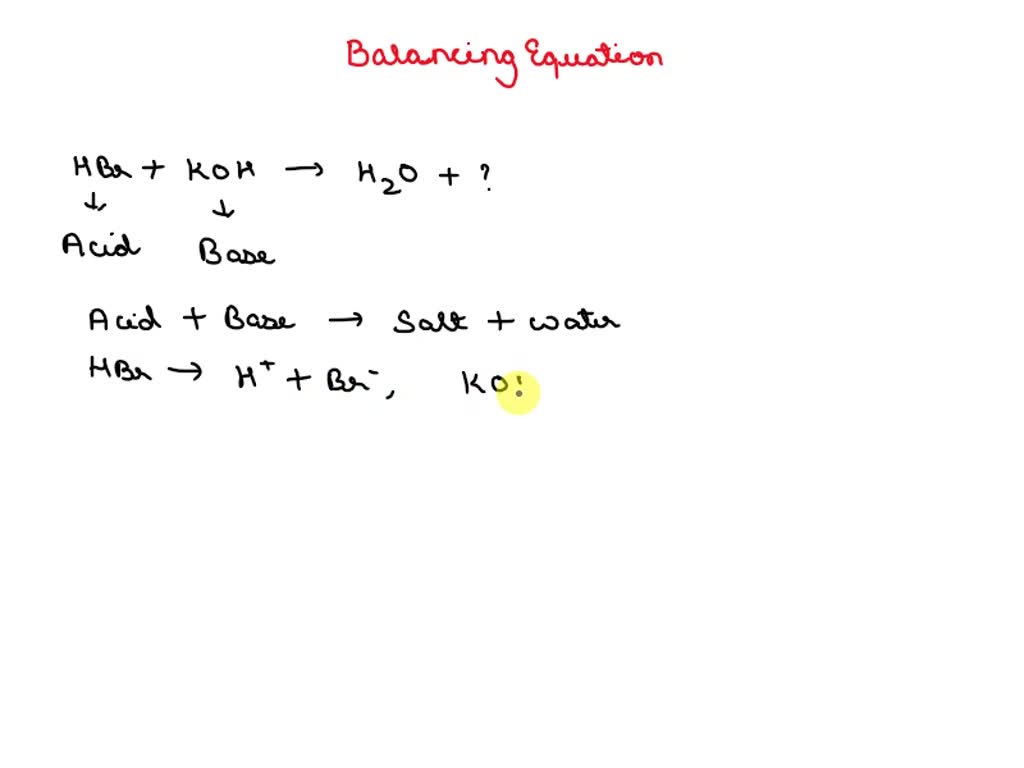 Balancing Equation
HBr + KOH → H₂O + ?
↓ ↓
Acid Base
Acid + Base → Salt + water
HBr → H⁺ + Br⁻, KO